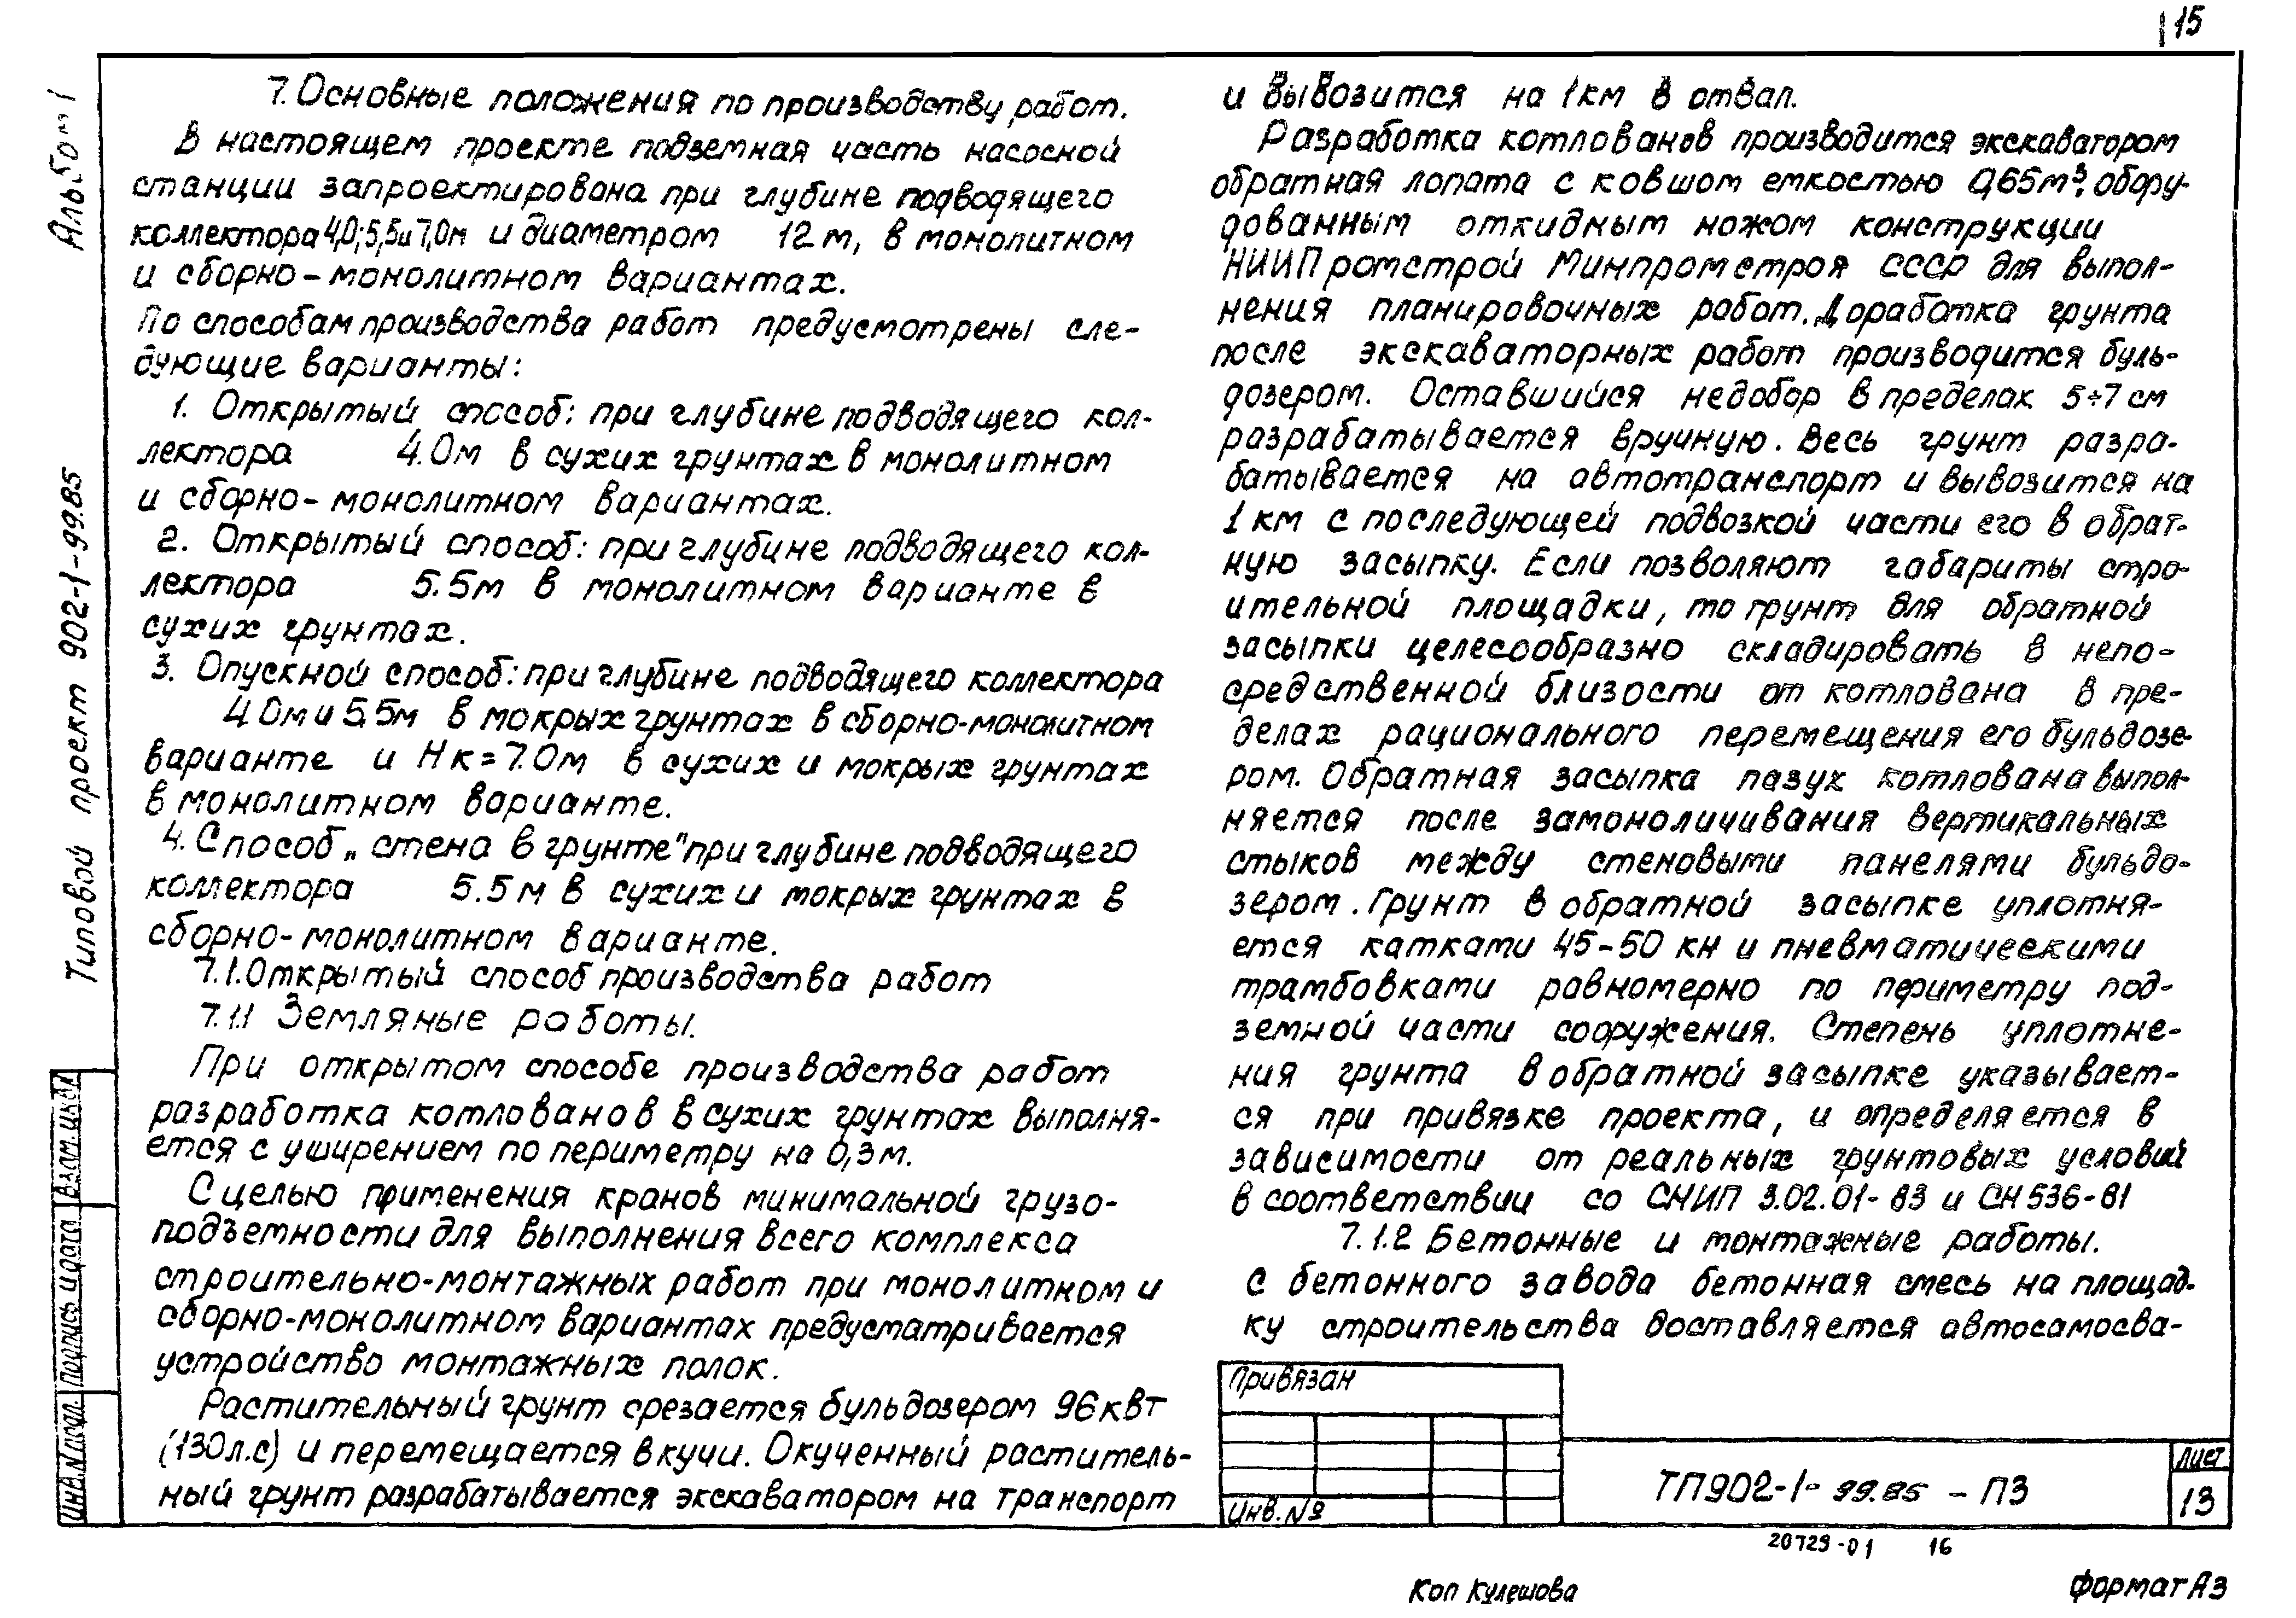 15
7. Основные положения по производству работ.
В настоящем проекте подземная часть насосной
станции запроектирована при глубине подводящего
коллектора 4,0; 5,5 и 7,0м и диаметром 12 м, в монолитном
и сборно-монолитном вариантах.
По способам производства работ предусмотрены сле-
дующие варианты:
1. Открытый способ: при глубине подводящего кол-
лектора 4.0м в сухих грунтах в монолитном
и сборно-монолитном вариантах.
2. Открытый способ: при глубине подводящего кол-
лектора 5.5м в монолитном варианте в
сухих грунтах.
3. Опускной способ: при глубине подводящего коллектора
4.0м и 5,5м в мокрых грунтах в сборно-монолитном
варианте и Нк=7.0м в сухих и мокрых грунтах
в монолитном варианте.
4. Способ „стена в грунте" при глубине подводящего
коллектора 5.5м в сухих и мокрых грунтах в
сборно-монолитном варианте.
7.1. Открытый способ производства работ
7.1.1 Земляные работы.
При открытом способе производства работ
разработка котлованов в сухих грунтах выполня-
ется с уширением по периметру на 0,3м.
С целью применения кранов минимальной грузо-
подъемности для выполнения всего комплекса
строительно-монтажных работ при монолитном и
сборно-монолитном вариантах предусматривается
устройство монтажных полок.
Растительный грунт срезается бульдозером 96 квт
(130л.с) и перемещается в кучи. Окученный раститель-
ный грунт разрабатывается экскаватором на транспорт
и вывозится на 1км в отвал.
Разработка котлованов производится экскаватором
обратная лопата с ковшом емкостью 0,65м³, обору-
дованным откидным ножом конструкции
НИИПромстрой Минпромстроя СССР для выпол-
нения планировочных работ. Доработка грунта
после экскаваторных работ производится буль-
дозером. Оставшийся недобор в пределах 5÷7 см
разрабатывается вручную. Весь грунт разра-
батывается на автотранспорт и вывозится на
1 км с последующей подвозкой части его в обрат-
ную засыпку. Если позволяют габариты стро-
ительной площадки, то грунт для обратной
засыпки целесообразно складировать в непо-
средственной близости от котлована в пре-
делах рационального перемещения его бульдозе-
ром. Обратная засыпка пазух котлована выпол-
няется после замоноличивания вертикальных
стыков между стеновыми панелями бульдо-
зером. Грунт в обратной засыпке уплотня-
ется катками 45-50 кн и пневматическими
трамбовками равномерно по периметру под-
земной части сооружения. Степень уплотне-
ния грунта в обратной засыпке указывает-
ся при привязке проекта, и определяется в
зависимости от реальных грунтовых условий
в соответствии со СНИП 3.02.01-83 и СН 536-81
7.1.2 Бетонные и монтажные работы.
С бетонного завода бетонная смесь на площад-
ку строительства доставляется автосамосва-
Альбом 1
Типовой проект 902-1-99.85
Взам. инв.
Подпись и дата
Инв. N подл.
Привязан
Инв. №
ТП902-1-99.85-ПЗ
Лист
13
20729-01 16
Коп Кулешова
Формат А3